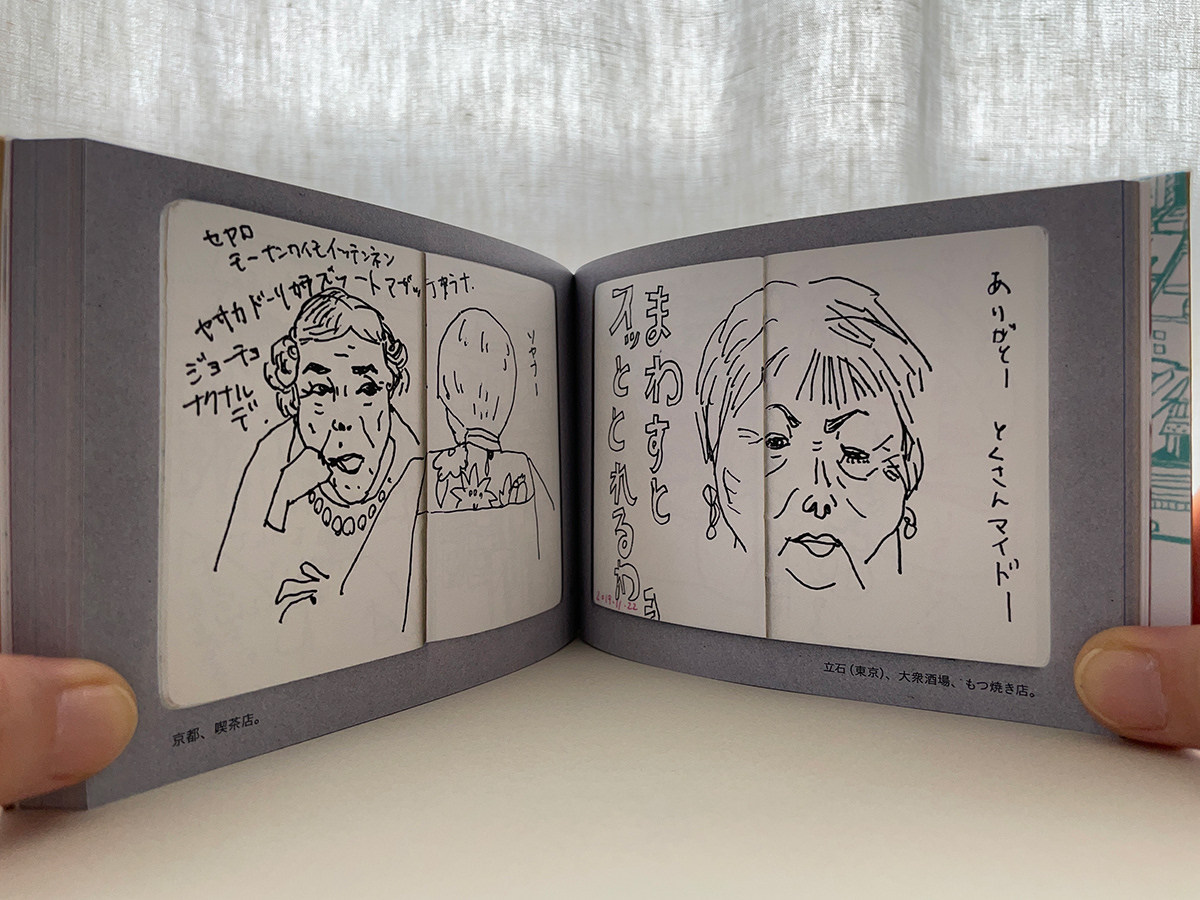 セヤロ
モーナンワイモイッテンネン
ヤサカドーリガヲズゥートマガッ
タラナ.
ジョーチョ
ナクナルデ.
ソヤナー
京都、喫茶店。
まわすと
スッととれるわ
2017.11.22
ありがとー とくさんマイドー
立石(東京)、大衆酒場、もつ焼き店。